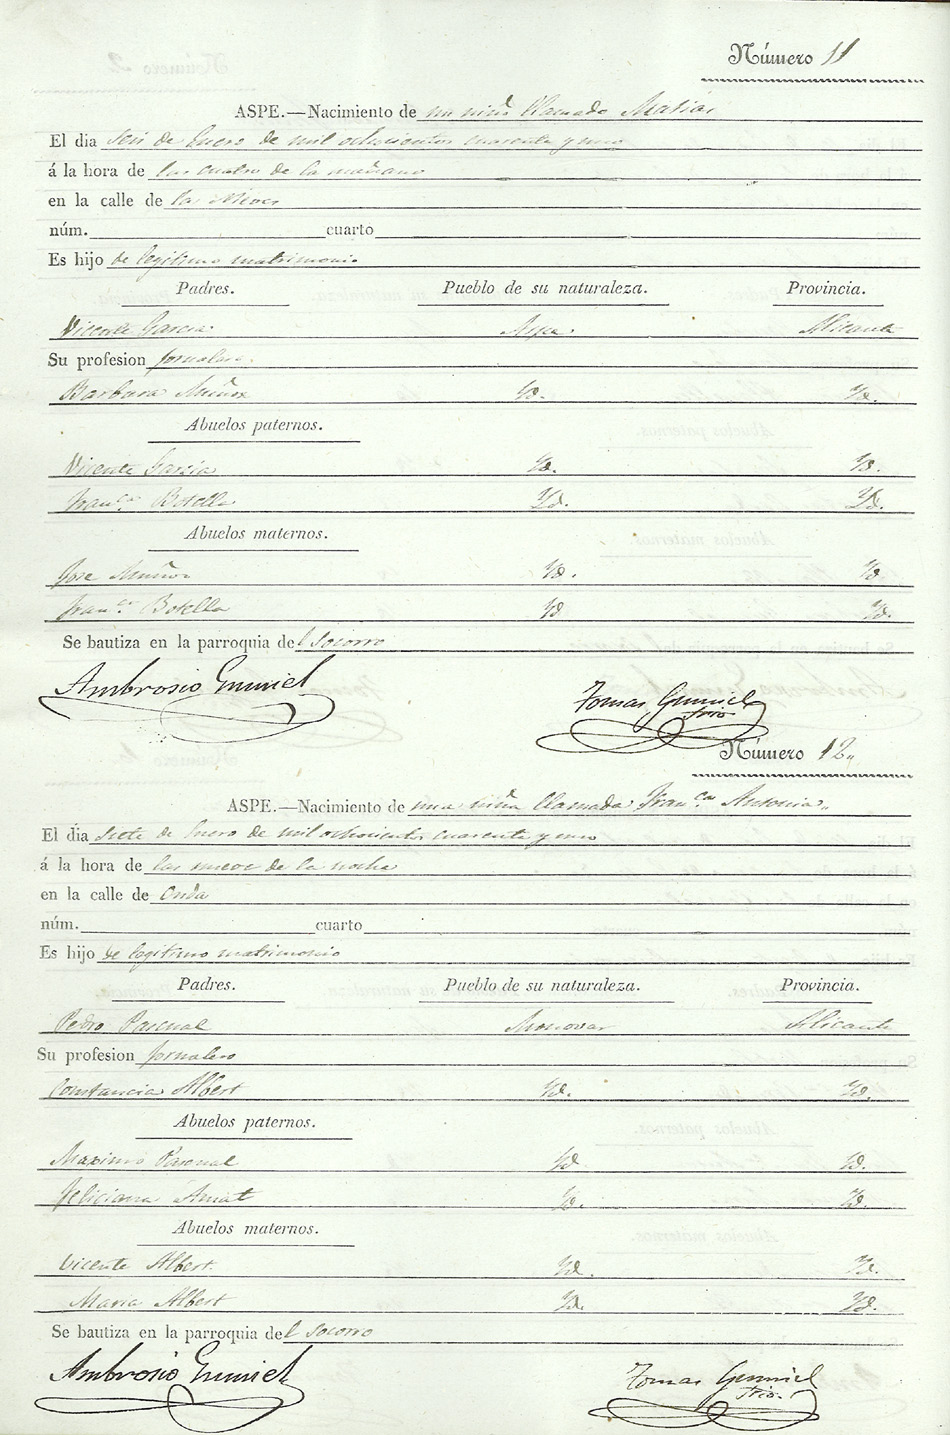 Número 11
ASPE.—Nacimiento de un niño llamado Matias
El dia seis de Enero de mil ochocientos cuarenta y uno
á la hora de las cuatro de la mañana
en la calle de las Nieves
núm. cuarto
Es hijo de legitimo matrimonio
Padres. Pueblo de su naturaleza. Provincia.
Vicente Garcia Aspe Alicante
Su profesion jornalero.
Barbara Muñoz Yd. Yd.
Abuelos paternos.
Vicente Garcia Yd. Yd.
Fran.ca Botella Yd. Yd.
Abuelos maternos.
Jose Muñoz Yd. Yd
Fran.ca Botella Yd Yd.
Se bautiza en la parroquia del Socorro
Ambrosio Gumiel
Tomas Gumiel
Srio.
Número 12
ASPE.—Nacimiento de una niña llamada Fran.ca Antonia.
El dia siete de Enero de mil ochocientos cuarenta y uno
á la hora de las nueve de la noche
en la calle de Onda
núm. cuarto
Es hijo de legitimo matrimonio
Padres. Pueblo de su naturaleza. Provincia.
Pedro Pascual Monovar Alicante
Su profesion jornalero
Constancia Albert Yd. Yd.
Abuelos paternos.
Maximo Pascual Yd Yd.
Feliciana Amat Yd. Yd.
Abuelos maternos.
Vicente Albert. Yd. Yd.
Maria Albert Yd. Yd.
Se bautiza en la parroquia del Socorro
Ambrosio Gumiel
Tomas Gumiel
Srio.